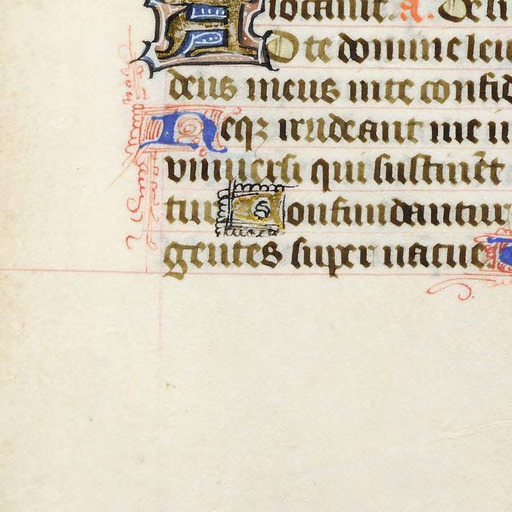 A. Deli
Ad te domine leu
deus meus in te confid
Neqz irrideant me in
vniuersi qui sustinēt
tur Confundantur
gentes super uacue